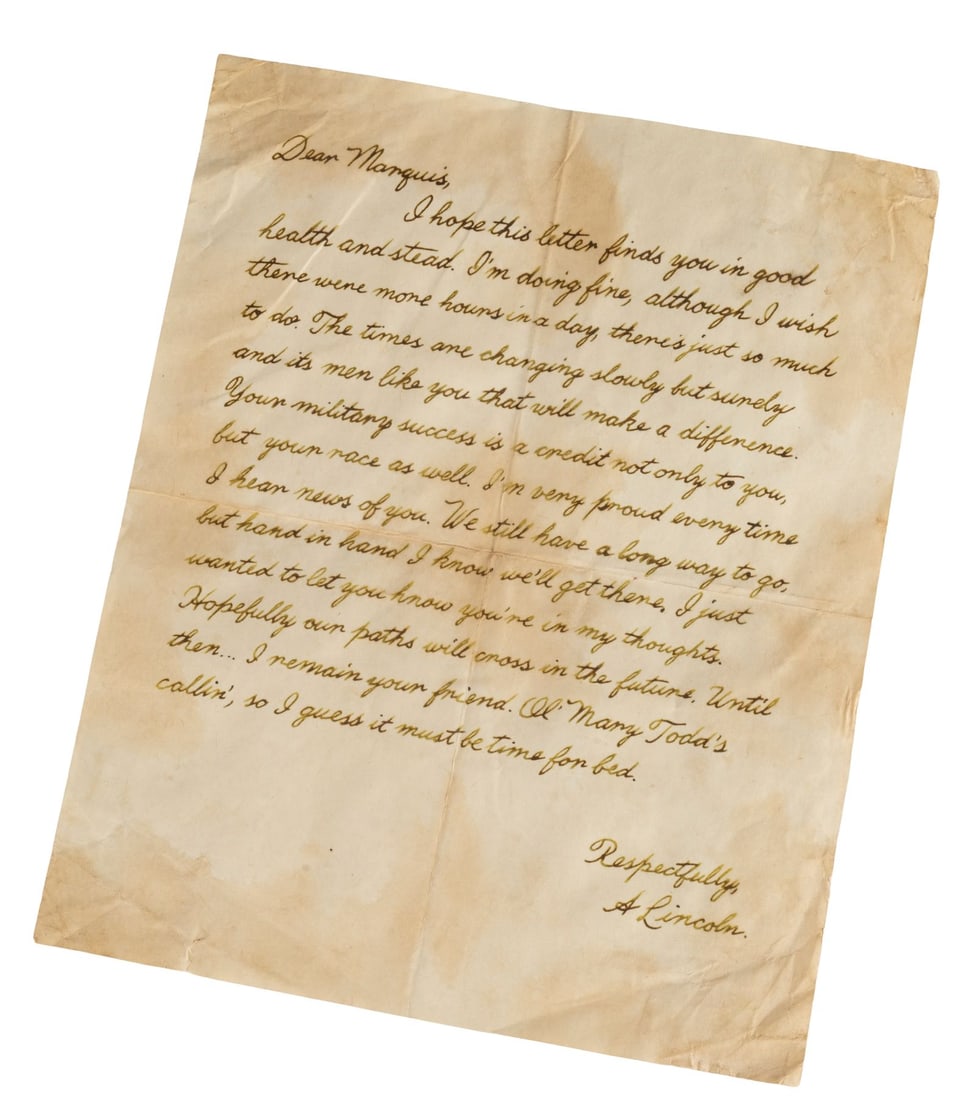 Dear Marquis,
I hope this letter finds you in good
health and stead. I'm doing fine, although I wish
there were more hours in a day, there's just so much
to do. The times are changing slowly but surely
and its men like you that will make a difference.
Your military success is a credit not only to you,
but your race as well. I'm very proud every time
I hear news of you. We still have a long way to go,
but hand in hand I know we'll get there. I just
wanted to let you know you're in my thoughts.
Hopefully our paths will cross in the future. Until
then... I remain your friend. Ol' Mary Todd's
callin', so I guess it must be time for bed.
Respectfully,
A Lincoln.